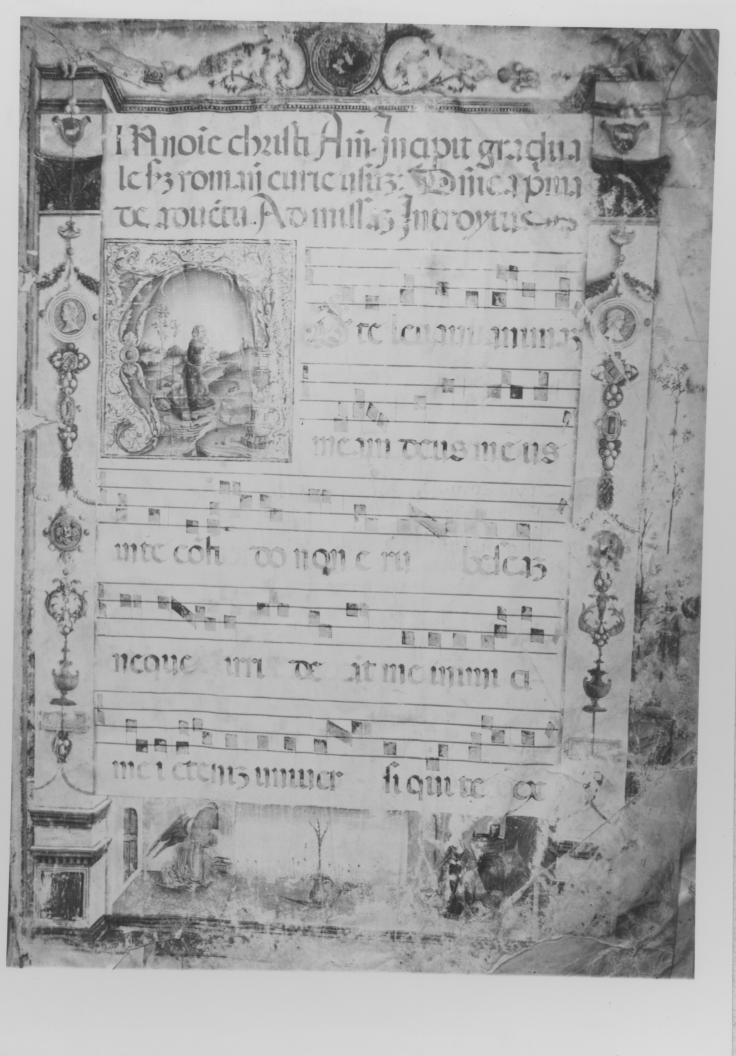 IN noie christi Am. Incipit gradua
le sz romani curie usuz. Dnica pma
de aduetu. Ad missaz Introytus
D te leuaui animaz
meam deus meus
in te cofi do non e ru bescaz
neque irri de at me inimi ci
me i etenīz uniuer si qui te ex